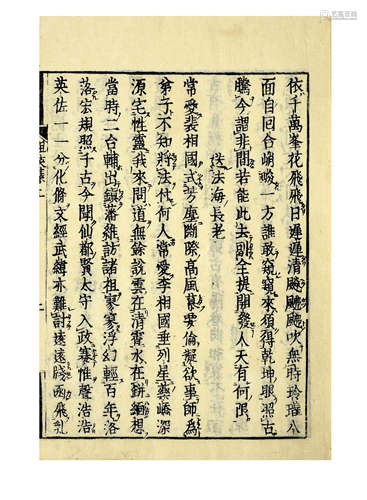 依千萬峯花飛飛日遲遲清飇飇吹無時玲瓏八
面自回合峭峻一方誰敢窺窺來須得乾坤眼照古
騰今謂非間若能此去則全提開發人天有何限
送法海長老
常愛裴相國式芳塵斷際高風慕要倫擬欲事師爲
弟子不知將法付何人常愛李相國垂列星臺嶠深
源宅性靈我來問道無餘說雲在青霄水在缾緬想
當時二台輔出鎮藩維訪諸祖寥寥浮幻輕百年落
落宏規照千古今聞仙都賢太守入政褰惟聲浩浩
英佐一一分化條文經武緯亦難討遠遠
祖英集